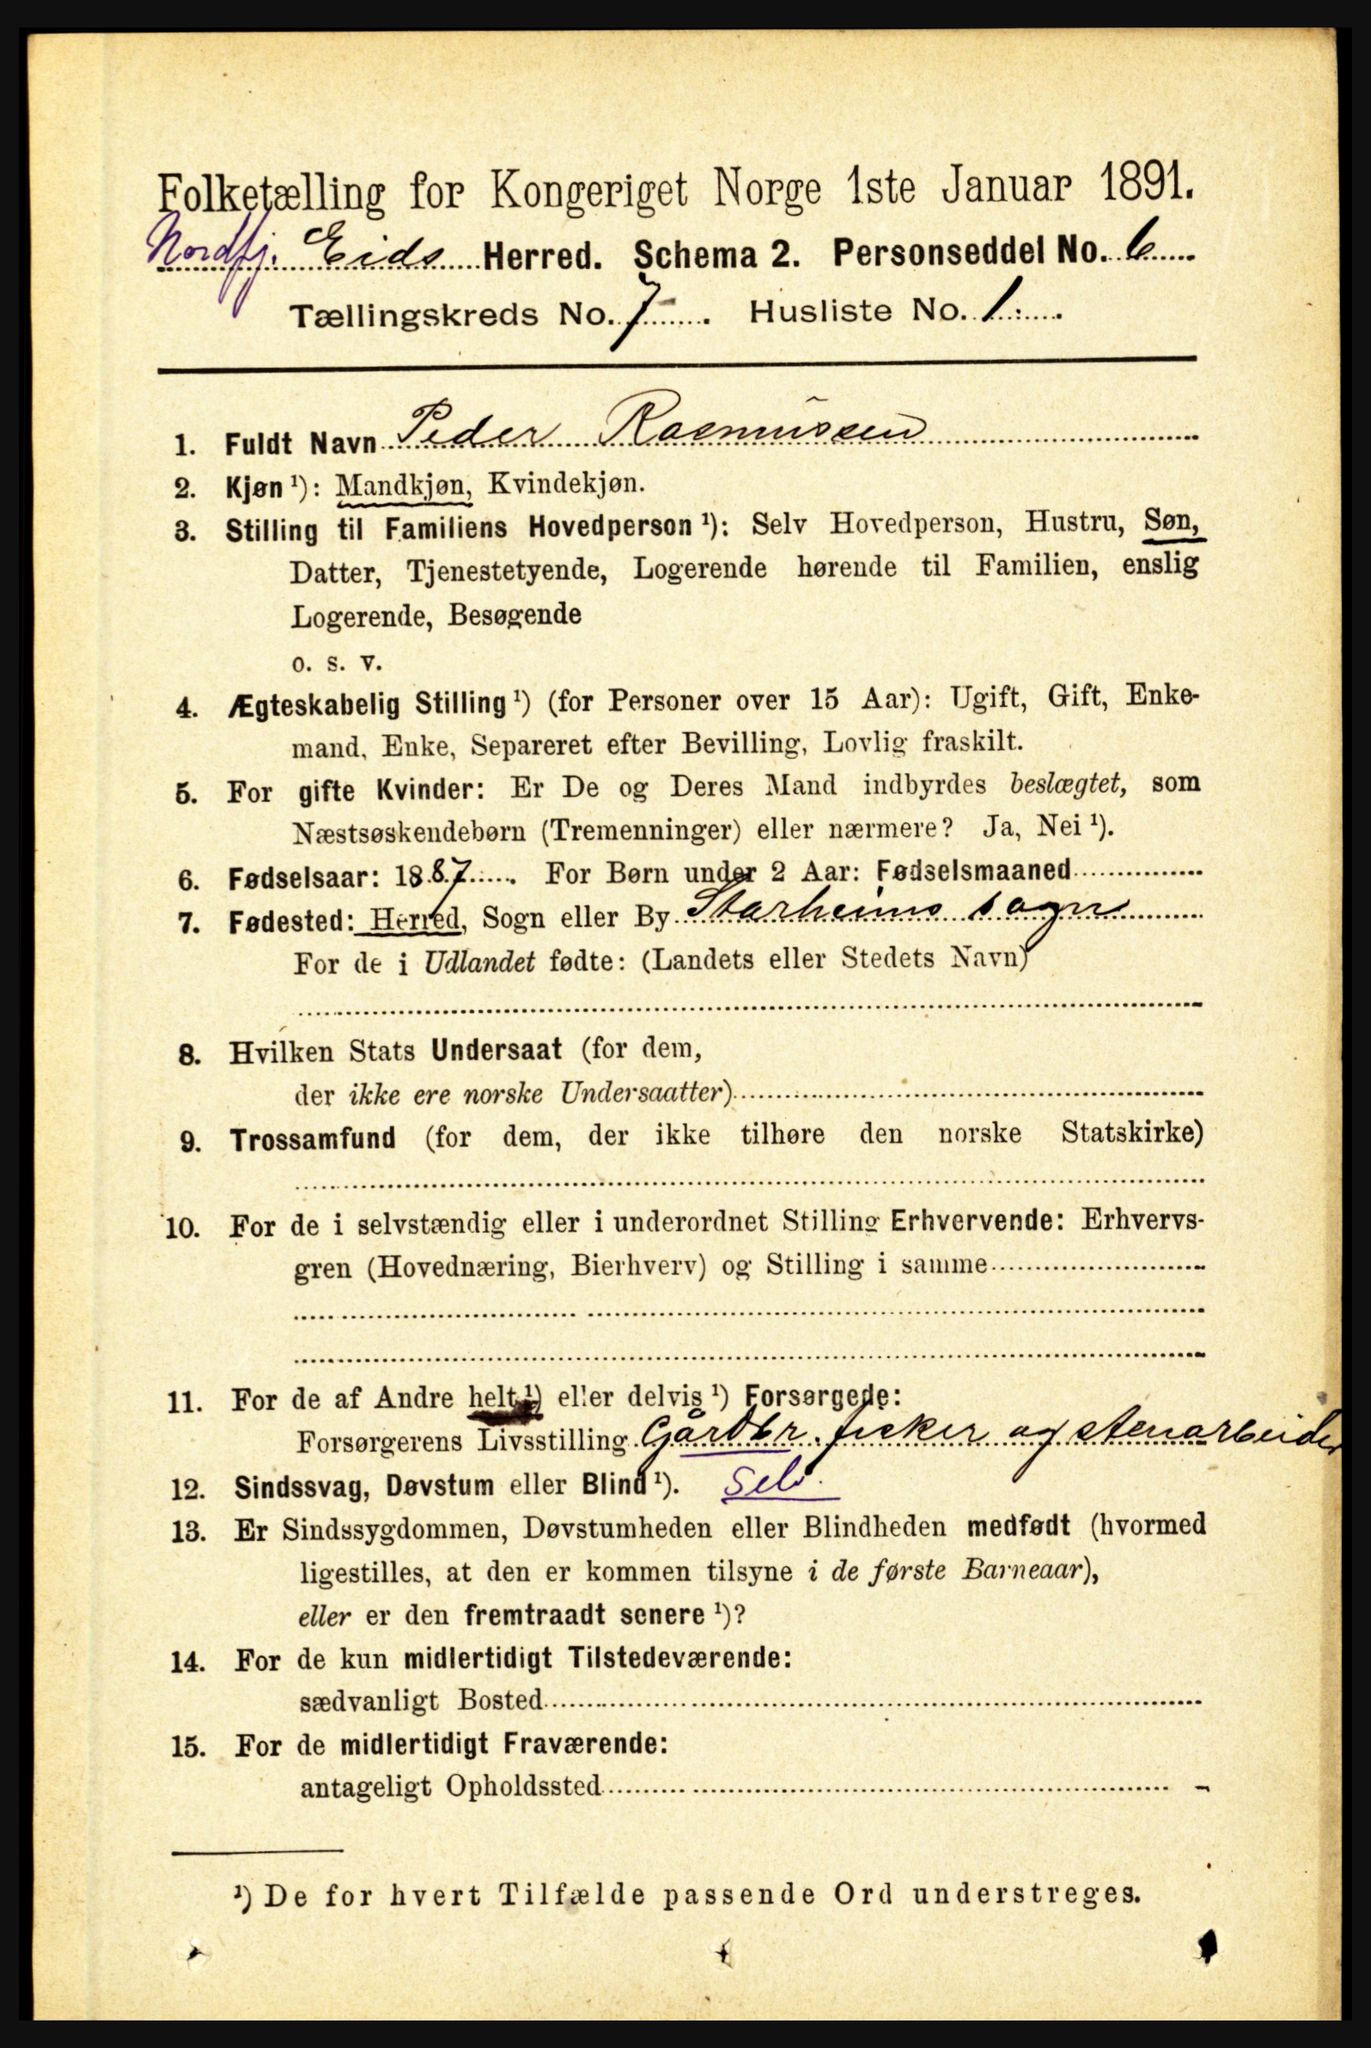 Folketælling for Kongeriget Norge 1ste Januar 1891.
Nordfj. Eids Herred. Schema 2. Personseddel No. 6
Tællingskreds No. 7 . Husliste No. 1.
1. Fuldt Navn Peder Rasmussen
2. Kjøn ¹): Mandkjøn, Kvindekjøn.
3. Stilling til Familiens Hovedperson ¹): Selv Hovedperson, Hustru, Søn,
Datter, Tjenestetyende, Logerende hørende til Familien, enslig
Logerende, Besøgende
o. s. v.
4. Ægteskabelig Stilling ¹) (for Personer over 15 Aar): Ugift, Gift, Enke-
mand, Enke, Separeret efter Bevilling, Lovlig fraskilt.
5. For gifte Kvinder: Er De og Deres Mand indbyrdes beslægtet, som
Næstsøskendebørn (Tremenninger) eller nærmere? Ja, Nei ¹).
6. Fødselsaar: 1887 . For Børn under 2 Aar: Fødselsmaaned
7. Fødested: Herred, Sogn eller By Starheims sogn
For de i Udlandet fødte: (Landets eller Stedets Navn)
8. Hvilken Stats Undersaat (for dem,
der ikke ere norske Undersaatter)
9. Trossamfund (for dem, der ikke tilhøre den norske Statskirke)
10. For de i selvstændig eller i underordnet Stilling Erhvervende: Erhvervs-
gren (Hovednæring, Bierhverv) og Stilling i samme
11. For de af Andre helt ¹) eller delvis ¹) Forsørgede:
Forsørgerens Livsstilling Gårdbr. fisker og stenarbeider
12. Sindssvag, Døvstum eller Blind ¹). Selv.
13. Er Sindssygdommen, Døvstumheden eller Blindheden medfødt (hvormed
ligestilles, at den er kommen tilsyne i de første Barneaar),
eller er den fremtraadt senere ¹)?
14. For de kun midlertidigt Tilstedeværende:
sædvanligt Bosted
15. For de midlertidigt Fraværende:
antageligt Opholdssted
¹) De for hvert Tilfælde passende Ord understreges.